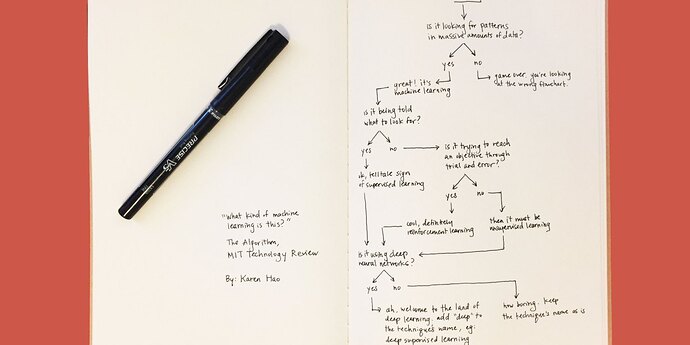 PRECISE V5
"What kind of machine
learning is this?"
The Algorithm,
MIT Technology Review
By: Karen Hao
is it looking for patterns
in massive amounts of data?
yes
no
great! it's
machine learning
game over. you're looking
at the wrong flowchart.
is it being told
what to look for?
yes
no
is it trying to reach
an objective through
trial and error?
ok, telltale sign
of supervised learning
yes
no
cool, definitely
reinforcement learning
then it must be
unsupervised learning
is it using deep
neural networks?
yes
no
ah, welcome to the land of
deep learning. add "deep" to
the technique's name, eg:
deep supervised learning
how boring. keep
the technique's name as is